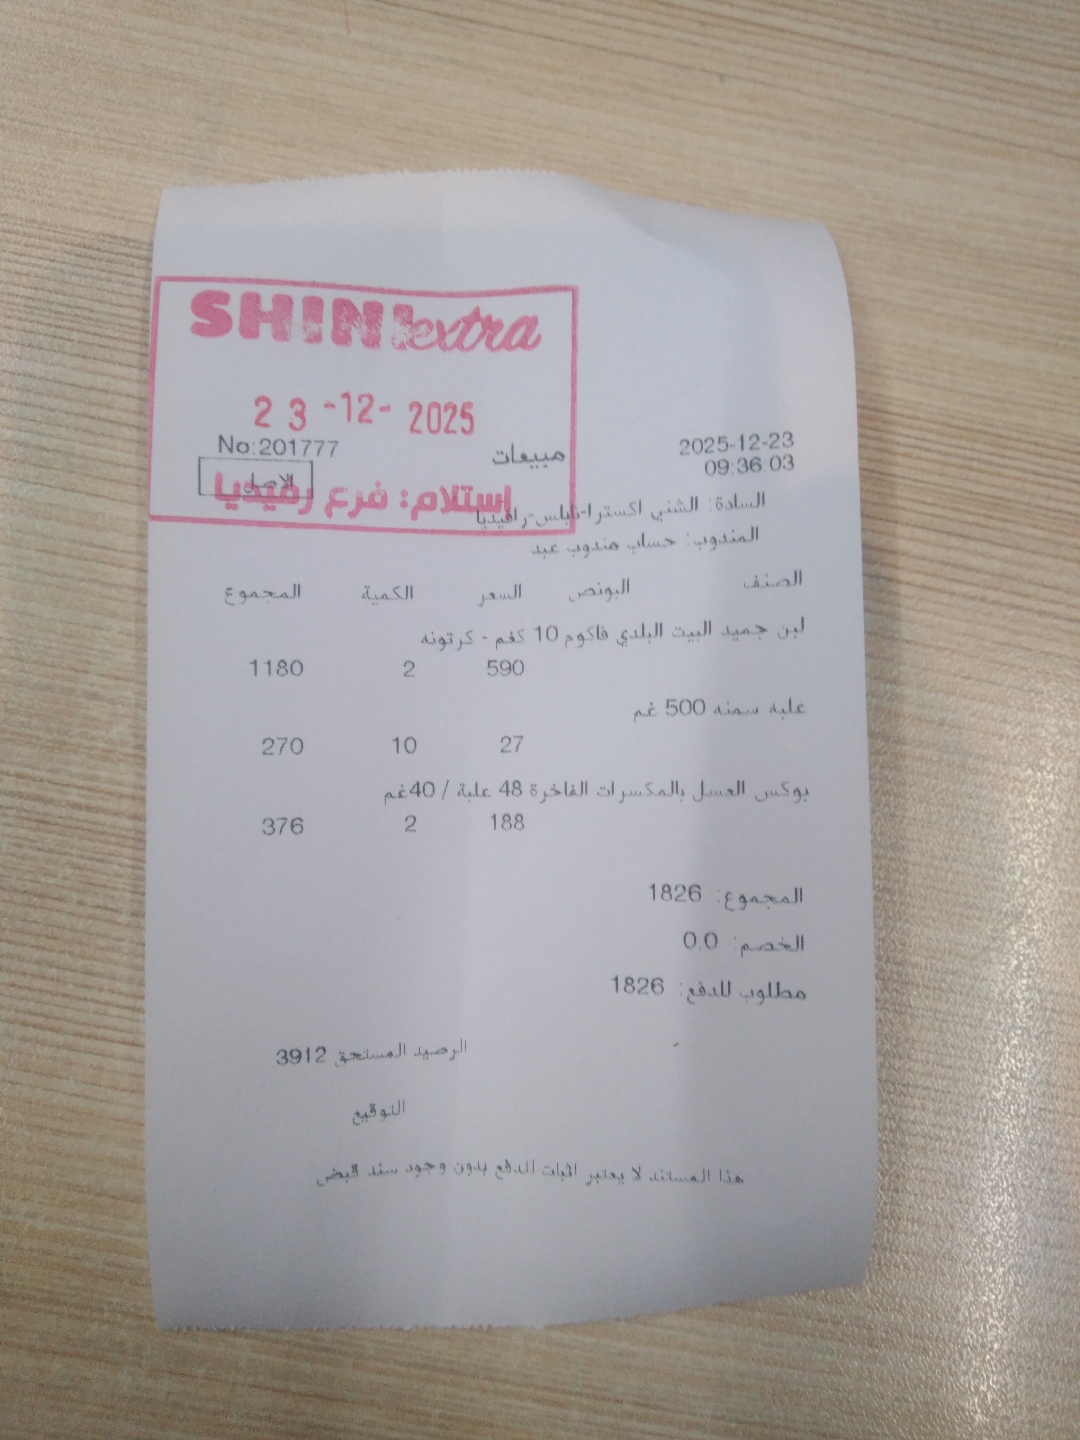 SHINI extra
23-12-2025
No:201777
مبيعات
2025-12-23
09:36:03
الاصل
استلام: فرع رفيديا
السادة: الشني اكسترا-نابلس-رافيديا
المندوب: حساب مندوب عبد
الصنف البونص السعر الكمية المجموع
لبن جميد البيت البلدي فاكوم 10 كغم - كرتونه
590 2 1180
علبه سمنه 500 غم
27 10 270
بوكس العسل بالمكسرات الفاخرة 48 علبة / 40غم
188 2 376
المجموع: 1826
الخصم: 0.0
مطلوب للدفع: 1826
الرصيد المستحق 3912
التوقيع
هذا المستند لا يعتبر اثبات للدفع بدون وجود سند قبض